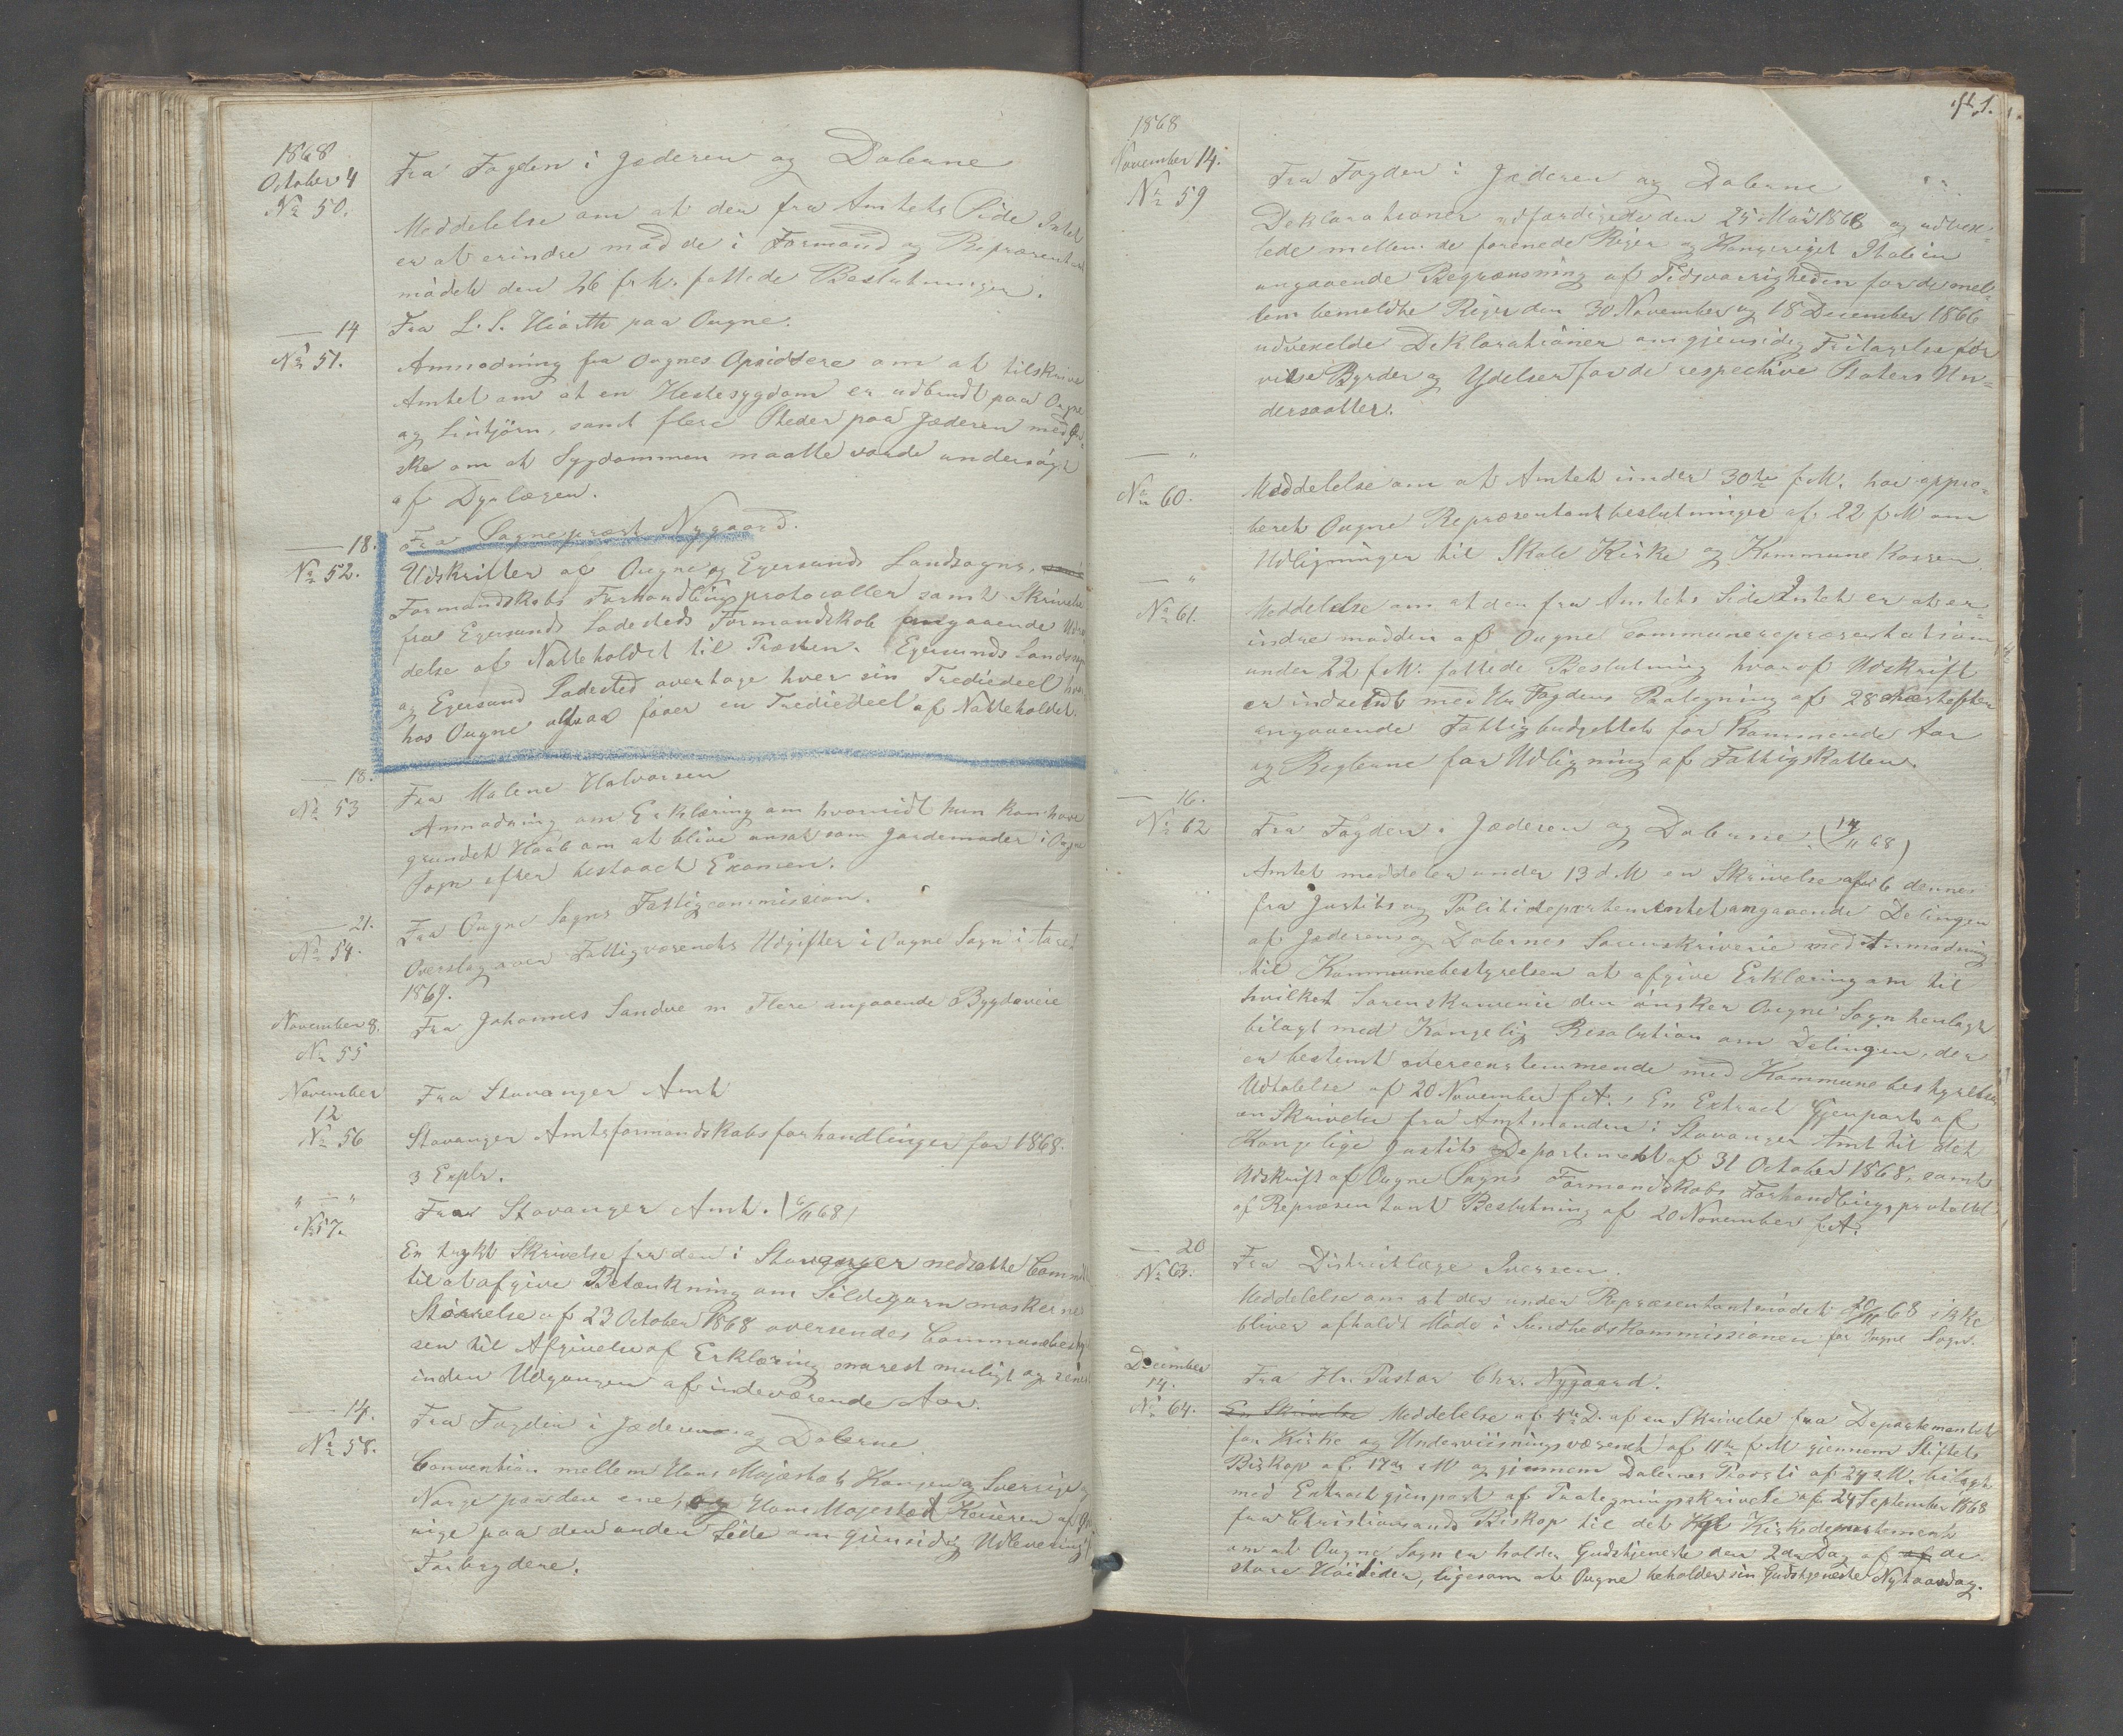 1868
October 4
No 50.
Fra Fogden i Jæderen og Dalerne
Meddelelse om at der fra Amtets Side Intet
er at erindre mod de i Formand og Repræsentant
mödet den 26 f. M. fattede Beslutninger.
— 14
No 51.
Fra L. S. Hiorth paa Ougne.
Anmodning fra Ougnes Opsiddere om at tilskrive
Amtet om at en Hestesygdom er udbrudt paa Ougne
og, samt flere Steder paa Jæderen med Øn-
ske om at Sygdommen maatte vorde undersögt
af Dyrlægen.
— 18.
No 52.
Fra Sognepræst Nygaard.
Udskrifter af Ougne og Egersunds Landsogns,
Formandskabs Forhandlingsprotocoller samt Skrivelse
fra Egersunds Ladesteds Formandskab angaaende Udre
delse af Natteholdet til Præsten. Egersunds Landsogn
og Egersund Ladested overtage hver sin Trediedeel
hos Ougne altsaa faaer en Trediedeel af Natteholdet.
— 18.
No 53
Fra Malene Halvorsen
Anmodning om Erklæring om hvorvidt hun kan have
grundet Haab om at blive ansat som Jordemoder i Ougne
Sogn efter bestaaet Examen.
— 21.
No 54.
Fra Ougne Sogns Fattigcommission.
Overslag over Fattigvæsenets Udgifter i Ougne Sogn i Aaret
1869.
November 8.
No 55
Fra Johannes Sandve m Flere angaaende Bygdeveie
November
12
No 56
Fra Stavanger Amt
Stavanger Amtsformandskabsforhandlinger for 1868.
3 Explr.
" — "
No 57.
Fra Stavanger Amt. (6/11 68)
En trykt Skrivelse fra den i Stavanger nedsatte Commi
til at afgive Betænkning om Sildegarnmaskernes
Störrelse af 23 October 1868 oversendes Communebesty
sen til Afgivelse af Erklæring snarest muligt og senest
inden Udgangen af indeværende Aar.
— 14.
No 58.
Fra Fogden i Jæderen og Dalerne
Convention mellem Hans Majestæt Kongen af Sverrige og
Norge paa den ene, og Hans Majestæt Keiseren af
rige paa den anden Side om gjensidig Udlevering af
Forbrydere.
1868
November 14.
No 59
Fra Fogden i Jæderen og Dalerne
Deklarationer udfærdigede den 25 Mai 1868 og udvex-
lede mellem de forenede Riger og Kongeriget Italien
angaaende Begrænsning af Tidsvarigheden for de mel-
lem bemeldte Riger den 30 November og 18 December 1866
udvexelde Deklarationer om gjensidig Fritagelse for
visse Byrder og Ydelser for de respective Staters Un-
dersaatter.
— "
No 60.
Meddelelse om at Amtet under 30te f. M. har appro-
beret Ougne Repræsentantbeslutninger af 22 f. M om
Udligninger til Skole Kirke og Kommune Kassen.
— "
No 61.
Meddelelse om at der fra Amtets Side Intet er at er-
indre mod den af Ougne Communerepræsentation
under 22 f. M. fattede Beslutning hvoraf Udskrift
er indsendt med Hr Fogdens Paategning af 28 næstefter
angaaende Fattigbudgettet for Kommende Aar
og Reglerne for Udligning af Fattigskatten.
— 16.
No 62
Fra Fogden i Jæderen og Dalerne. (14/11 68)
Amtet meddeler under 13 d. M en Skrivelse af 6 dennes
fra Justits og Politidepartementet angaaende Delingen
af Jæderens og Dalernes Sorenskriverie med Anmodning
til Kommunebestyrelsen at afgive Erklæring om til
hvilket Sorenskriverie den önsker Ougne Sogn henlagt
bilagt med Kongelig Resolution om Delingen, der
er bestemt overeenstemmende med Kommunebestyrelsens
Udtalelse af 20 November f. A. En Extract Gjenpart af
en Skrivelse fra Amtmanden i Stavanger Amt til det
Kongelige Justits Departement af 31 October 1868, samt
Udskrift af Ougne Sogns Formandskabs Forhandlingsprotokol
af Repræsentant Beslutning af 20 November f. A.
— 20
No 63.
Fra Distriktlæge Iversen.
Meddelelse om at der under Repræsentantmödet 20/11 68 ikke
bliver afholdt Möde i Sundhedskommissionen for Ougne Sogn.
December
14.
No 64.
Fra Hr. Pastor Chr. Nygaard.
En Skrivelse Meddelelse af 4de D. af en Skrivelse fra Departementet
for Kirke og Underviisningsvæsenet af 11te f. M gjennem Stiftets
Biskop af 17de s. M og gjennem Dalernes Provsti af 24 s. M. bilagt
med Extractgjenpart af Paategningsskrivelse af 24 September 1868
fra Christiansands Biskop til det Kgl Kirkedepartement
om at Ougne Sogn er holden Gudstjeneste den 2den Dag af af de
store Höitider, ligesom at Ougne beholder sin Gudstjeneste Nytaarsdag.